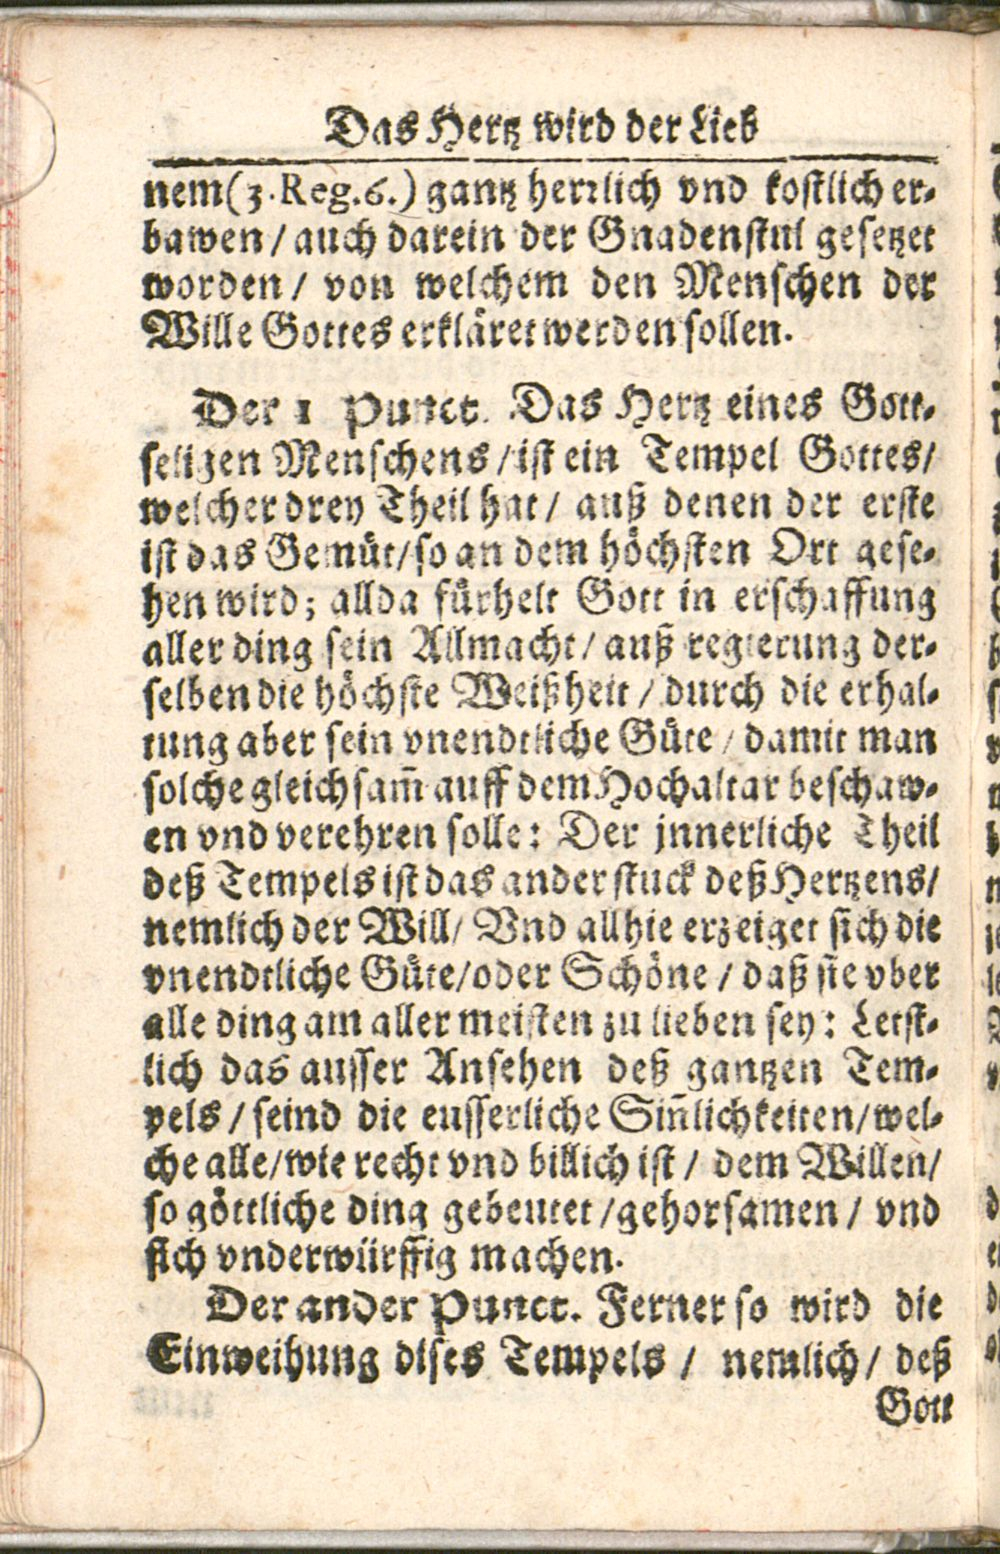 Das Hertz wird der Lieb
nem (3. Reg. 6.) gantz herrlich vnd kostlich er-
bawen / auch darein der Gnadenstul gesetzet
worden / von welchem den Menschen der
Wille Gottes erkläret werden sollen.
Der 1 Punct. Das Hertz eines Gott-
seligen Menschens / ist ein Tempel Gottes /
welcher drey Theil hat / auß denen der erste
ist das Gemüt / so an dem höchsten Ort gese-
hen wird; allda fürhelt Gott in erschaffung
aller ding sein Allmacht / auß regierung der-
selben die höchste Weißheit / durch die erhal-
tung aber sein vnendtliche Güte / damit man
solche gleichsam̃ auff dem Hochaltar beschaw-
en vnd verehren solle: Der jnnerliche Theil
deß Tempels ist das ander stuck deß Hertzens /
nemlich der Will / Vnd allhie erzeiget sich die
vnendtliche Güte / oder Schöne / daß sie vber
alle ding am aller meisten zu lieben sey: Letst-
lich das ausser Ansehen deß gantzen Tem-
pels / seind die eusserliche Sin̄lichkeiten / wel-
che alle / wie recht vnd billich ist / dem Willen /
so göttliche ding gebeutet / gehorsamen / vnd
sich vnderwürffig machen.
Der ander Punct. Ferner so wird die
Einweihung dises Tempels / nemlich / deß
Gott